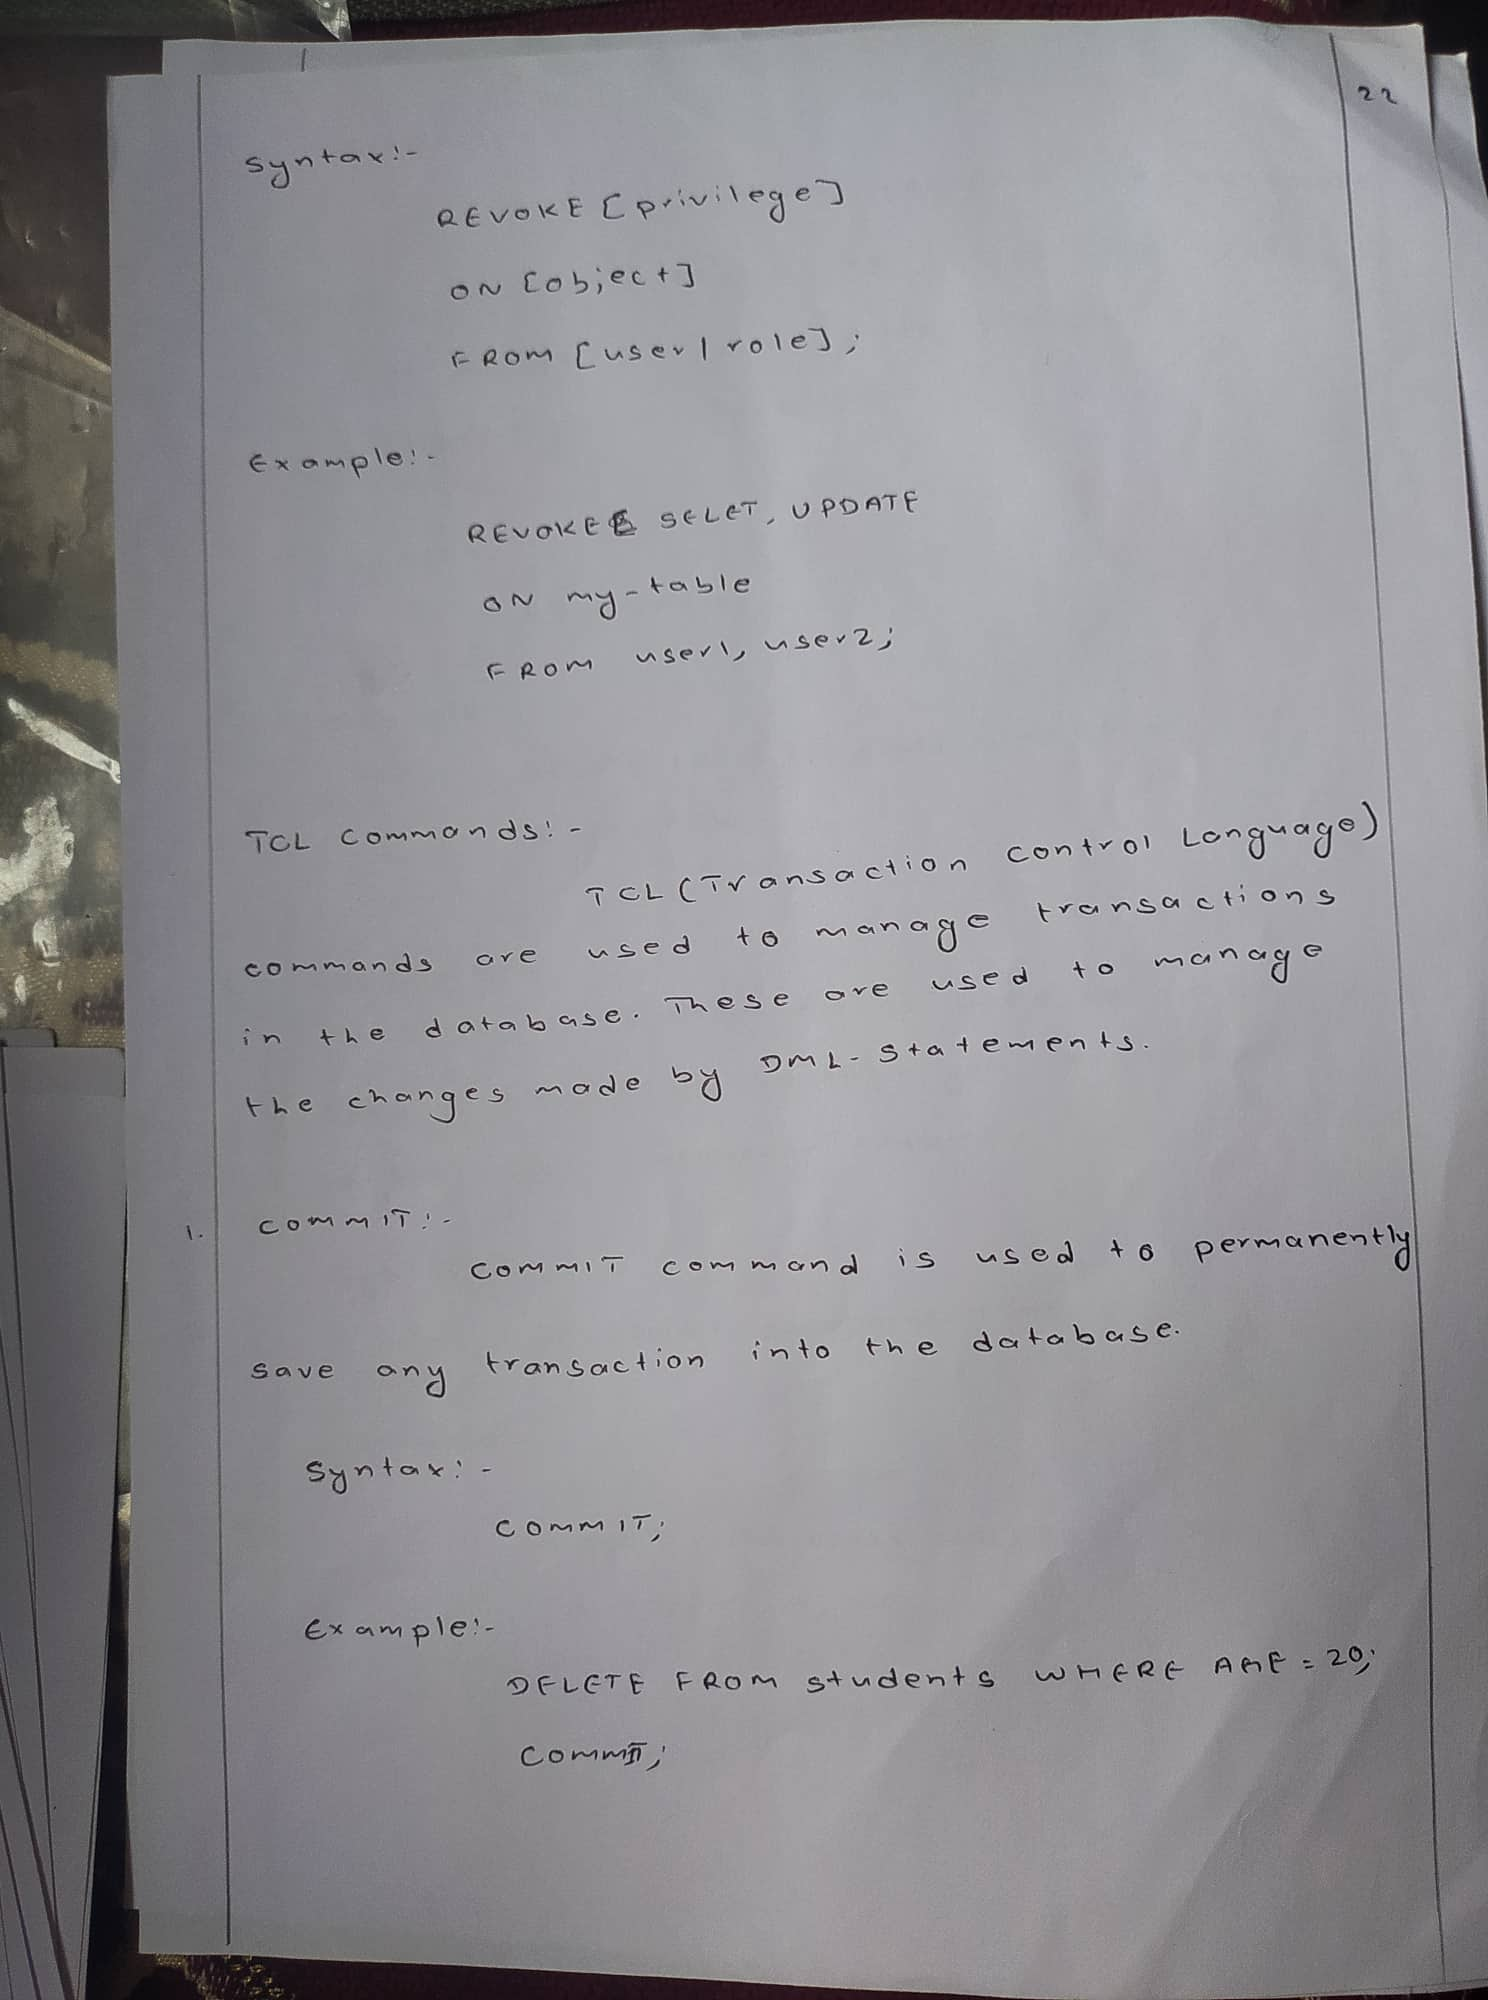 22
Syntax:-
REVOKE [privilege]
ON [object]
FROM [user | role];
Example:-
REVOKE SELET, UPDATE
ON my-table
FROM user1, user2;
TCL Commands:-
TCL (Transaction Control Language)
commands are used to manage transactions
in the database. These are used to manage
the changes made by DML-Statements.
1. COMMIT:-
COMMIT command is used to permanently
save any transaction into the database.
Syntax:-
COMMIT;
Example:-
DELETE FROM students WHERE AGE = 20;
COMMIT;